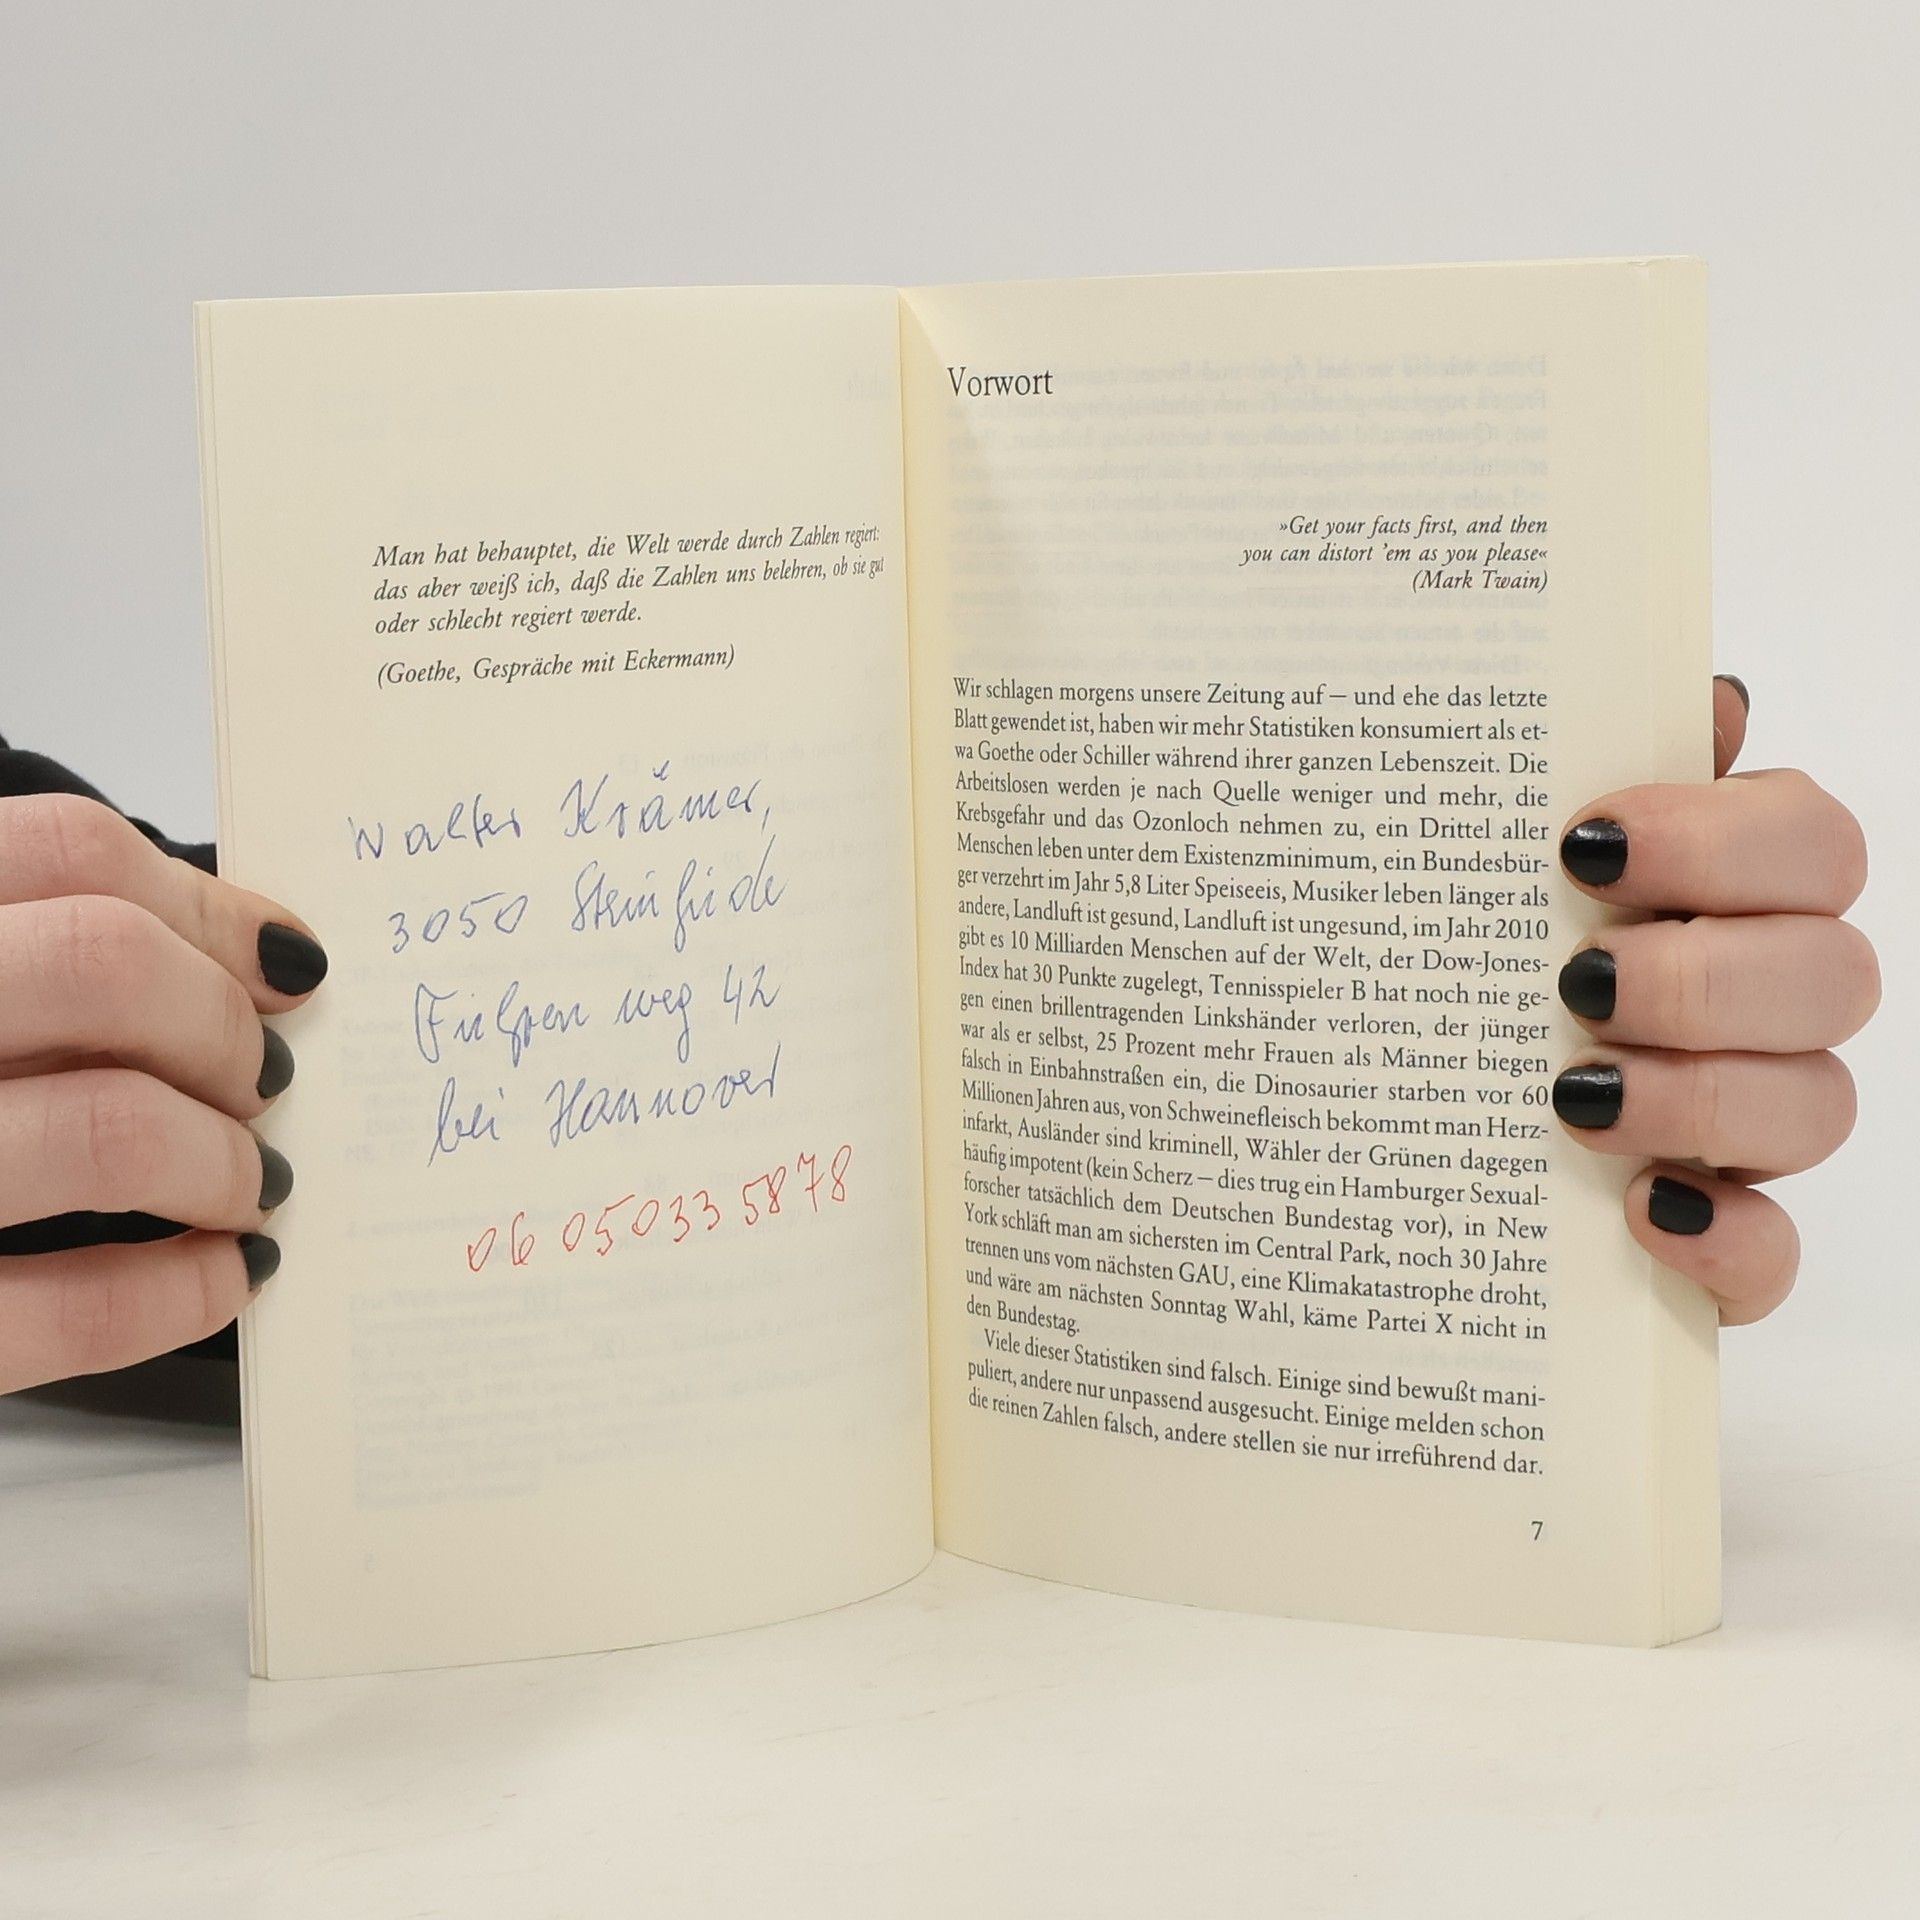 Man hat behauptet, die Welt werde durch Zahlen regiert:
das aber weiß ich, daß die Zahlen uns belehren, ob sie gut
oder schlecht regiert werde.
(Goethe, Gespräche mit Eckermann)
Walter Krämer,
3050 Steinhude
weg 42
bei Hannover
06 05033 5878
Vorwort
»Get your facts first, and then
you can distort ’em as you please«
(Mark Twain)
Wir schlagen morgens unsere Zeitung auf – und ehe das letzte
Blatt gewendet ist, haben wir mehr Statistiken konsumiert als et-
wa Goethe oder Schiller während ihrer ganzen Lebenszeit. Die
Arbeitslosen werden je nach Quelle weniger und mehr, die
Krebsgefahr und das Ozonloch nehmen zu, ein Drittel aller
Menschen leben unter dem Existenzminimum, ein Bundesbür-
ger verzehrt im Jahr 5,8 Liter Speiseeis, Musiker leben länger als
andere, Landluft ist gesund, Landluft ist ungesund, im Jahr 2010
gibt es 10 Milliarden Menschen auf der Welt, der Dow-Jones-
Index hat 30 Punkte zugelegt, Tennisspieler B hat noch nie ge-
gen einen brillentragenden Linkshänder verloren, der jünger
war als er selbst, 25 Prozent mehr Frauen als Männer biegen
falsch in Einbahnstraßen ein, die Dinosaurier starben vor 60
Millionen Jahren aus, von Schweinefleisch bekommt man Herz-
infarkt, Ausländer sind kriminell, Wähler der Grünen dagegen
häufig impotent (kein Scherz – dies trug ein Hamburger Sexual-
forscher tatsächlich dem Deutschen Bundestag vor), in New
York schläft man am sichersten im Central Park, noch 30 Jahre
trennen uns vom nächsten GAU, eine Klimakatastrophe droht,
und wäre am nächsten Sonntag Wahl, käme Partei X nicht in
den Bundestag.
Viele dieser Statistiken sind falsch. Einige sind bewußt mani-
puliert, andere nur unpassend ausgesucht. Einige melden schon
die reinen Zahlen falsch, andere stellen sie nur irreführend dar.
7